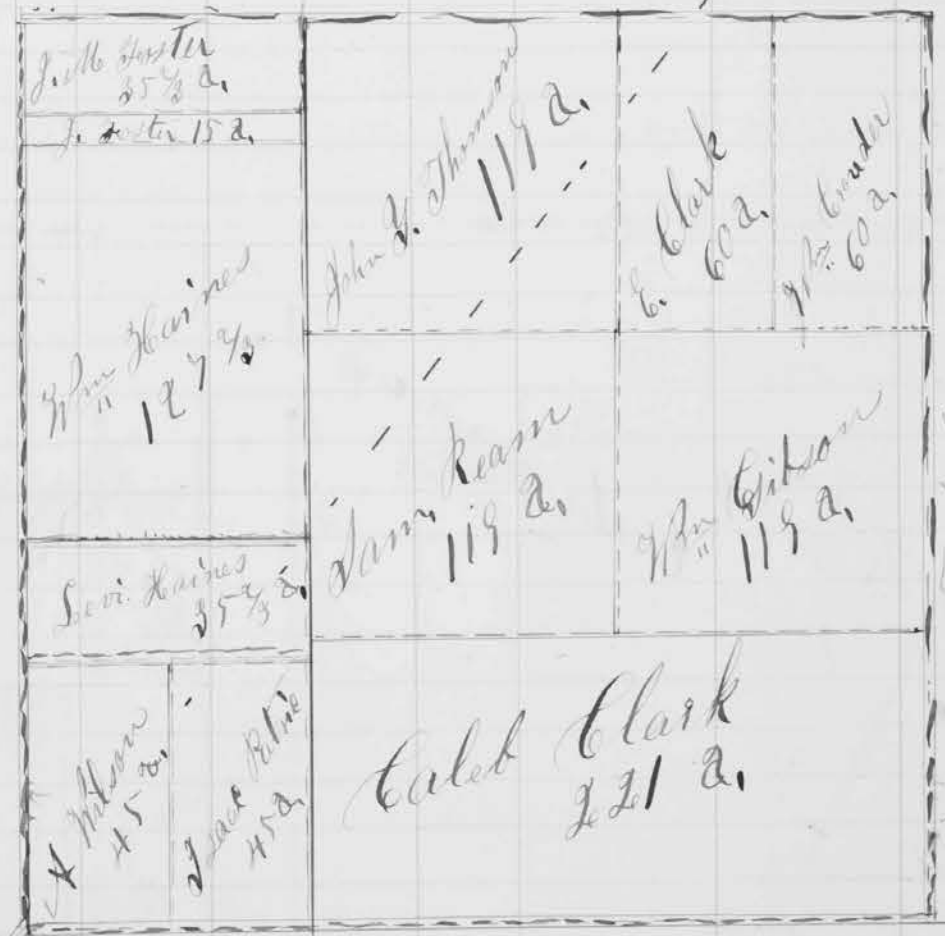 J. M Foster
35 2/3 a.
J. Foster 15 a.
Wm Haines
127 2/3
Levi Haines
35 2/3 a.
A Wilson
45 a.
Isaac
45 a.
John Y. Thmson
119 a.
E. Clark
60 a.
Wm
60 a.
Sam. Ream
119 a.
Wm Gibson
119 a.
Caleb Clark
221 a.